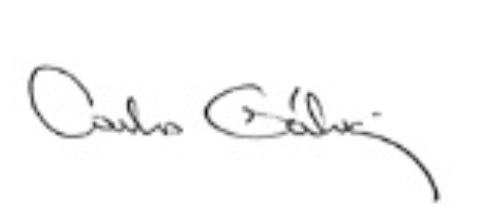 Carlos Gálvez